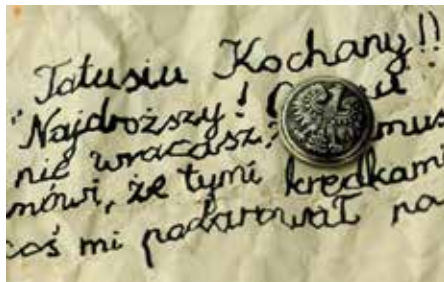 Tatusiu Kochany!!
"Najdroższy!
nie wracasz?
mówi, że tymi kredkami
coś mi podarował na